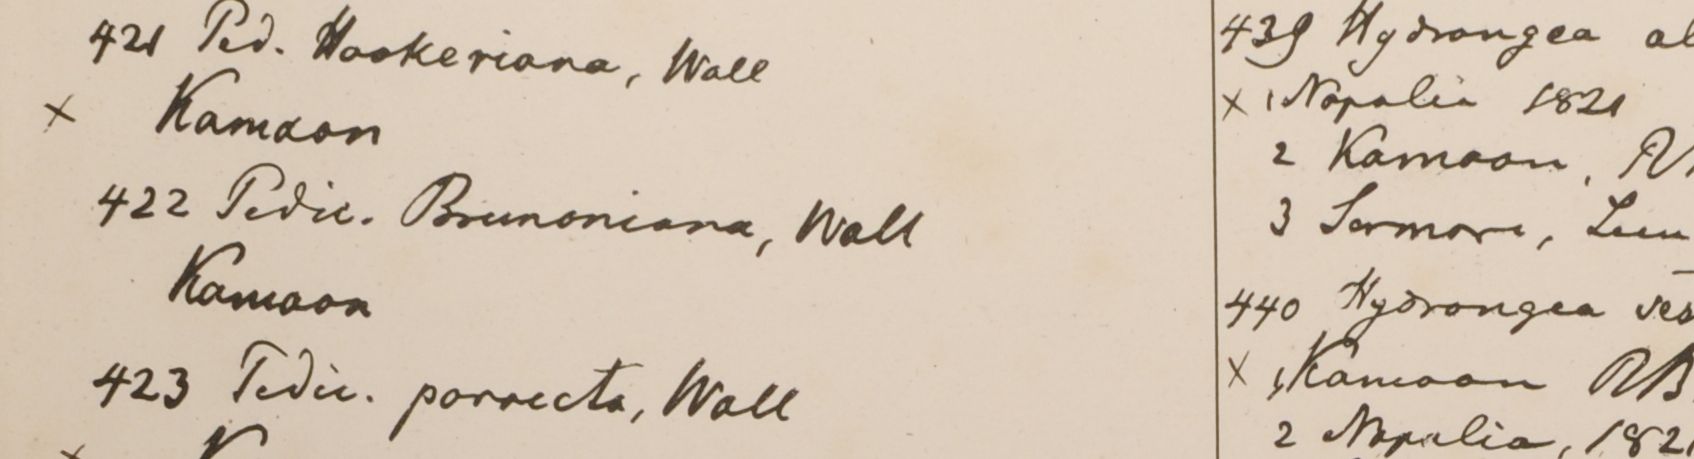 421 Ped. Hookeriana, Wall
× Kamaon
422 Pedic. Brunoniana, Wall
Kamaon
423 Pedic. porrecta, Wall
×
439 Hydrangea al
× 1 Napalia 1821
2 Kamaon, R
3 Sermore,
440 Hydrangea ves
× 1 Kamaon RB
2 Napalia, 1821